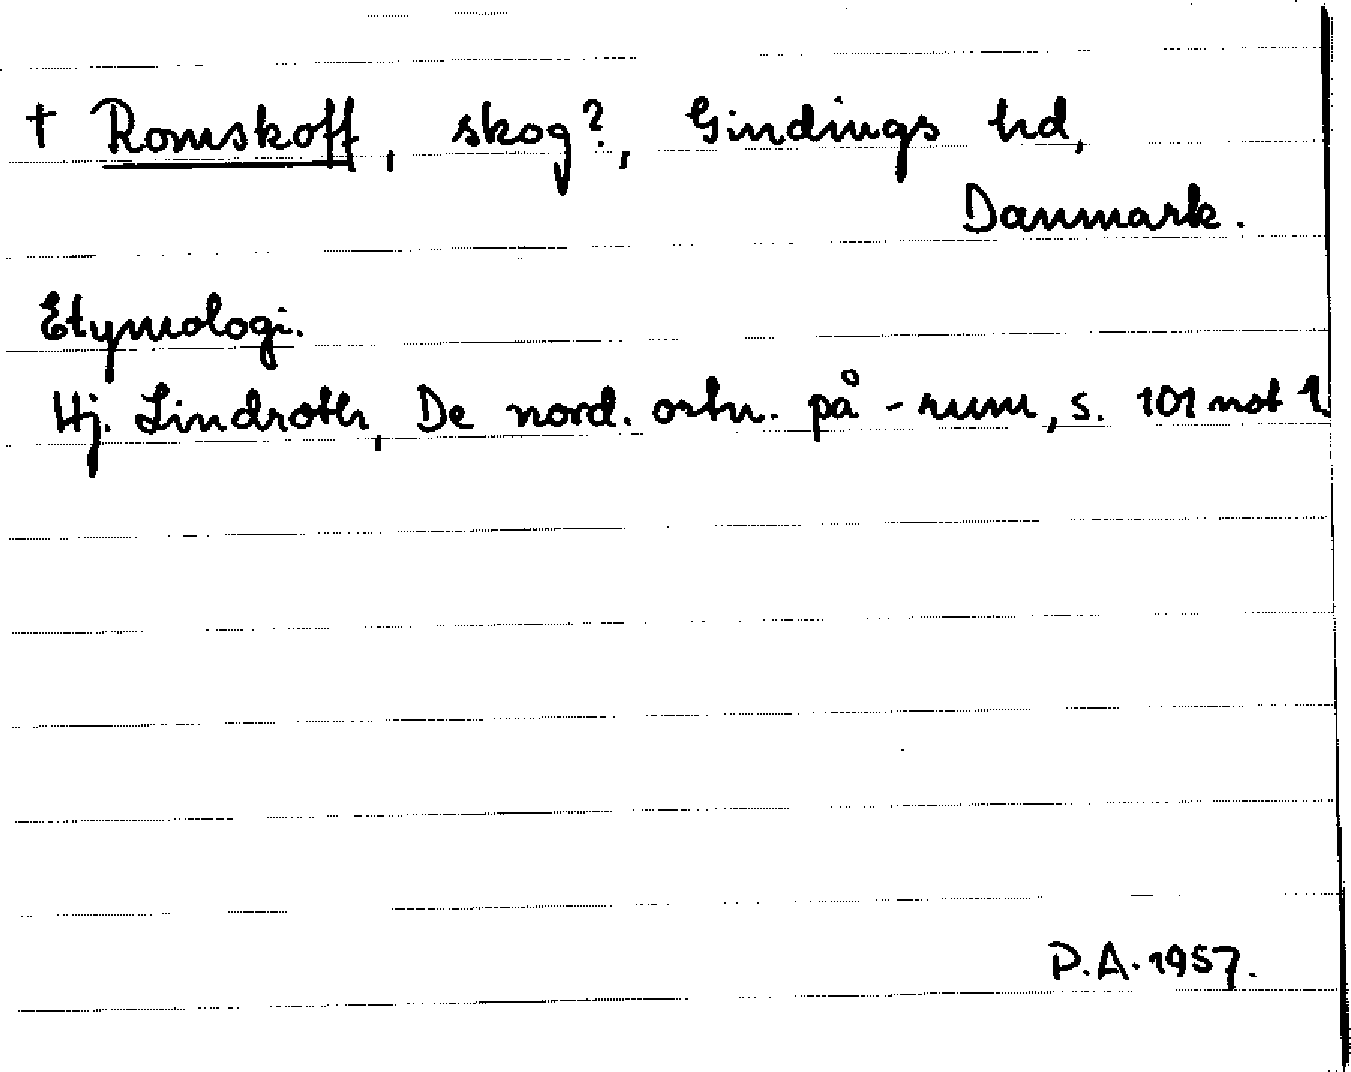 † Romskoff, skog?, Gindings hd,
Danmark.
Etymologi.
Hj. Lindroth, De nord. ortn. på -rum, s. 101 not 1.
P.A. 1957.